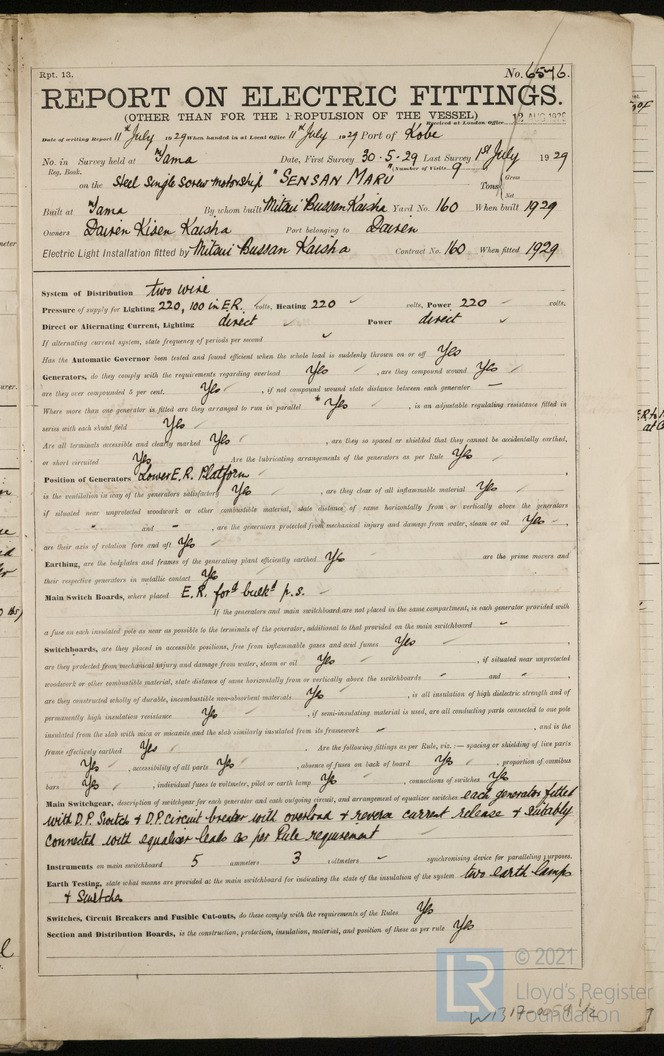 Rpt. 13.
No. 6546.
REPORT ON ELECTRIC FITTINGS.
(OTHER THAN FOR THE PROPULSION OF THE VESSEL)
Received at London Office 12 AUG 1929
Date of writing Report 11th July 1929 When handed in at Local Office 11th July 1929 Port of Kobe
No. in Survey held at Tama Date, First Survey 30.5.29 Last Survey 1st July 1929
Reg. Book. (Number of Visits 9
on the Steel Single Screw motorship "SENSAN MARU" Tons Gross Net
Built at Tama By whom built Mitsui Bussan Kaisha Yard No. 160 When built 1929
Owners Dairen Kisen Kaisha Port belonging to Dairen
Electric Light Installation fitted by Mitsui Bussan Kaisha Contract No. 160 When fitted 1929
System of Distribution two wire
Pressure of supply for Lighting 220, 100 in E.R. volts, Heating 220 volts, Power 220 volts,
Direct or Alternating Current, Lighting direct Power direct
If alternating current system, state frequency of periods per second
Has the Automatic Governor been tested and found efficient when the whole load is suddenly thrown on or off Yes
Generators, do they comply with the requirements regarding overload Yes, are they compound wound Yes
are they over compounded 5 per cent. Yes, if not compound wound state distance between each generator —
Where more than one generator is fitted are they arranged to run in parallel Yes, is an adjustable regulating resistance fitted in
series with each shunt field Yes
Are all terminals accessible and clearly marked Yes, are they so spaced or shielded that they cannot be accidentally earthed,
or short circuited Yes Are the lubricating arrangements of the generators as per Rule Yes
Position of Generators Lower E.R. Platform
is the ventilation in way of the generators satisfactory Yes, are they clear of all inflammable material Yes
if situated near unprotected woodwork or other combustible material, state distance of same horizontally from or vertically above the generators
" and ", are the generators protected from mechanical injury and damage from water, steam or oil Yes,
are their axis of rotation fore and aft Yes
Earthing, are the bedplates and frames of the generating plant efficiently earthed Yes are the prime movers and
their respective generators in metallic contact Yes
Main Switch Boards, where placed E.R. for'd bulk'd p.s.
If the generators and main switchboard are not placed in the same compartment, is each generator provided with
a fuse on each insulated pole as near as possible to the terminals of the generator, additional to that provided on the main switchboard
Switchboards, are they placed in accessible positions, free from inflammable gases and acid fumes Yes,
are they protected from mechanical injury and damage from water, steam or oil Yes, if situated near unprotected
woodwork or other combustible material, state distance of same horizontally from or vertically above the switchboards " and ",
are they constructed wholly of durable, incombustible non-absorbent materials Yes, is all insulation of high dielectric strength and of
permanently high insulation resistance Yes, if semi-insulating material is used, are all conducting parts connected to one pole
insulated from the slab with mica or micanite and the slab similarly insulated from its framework ", and is the
frame effectively earthed Yes. Are the following fittings as per Rule, viz.:— spacing or shielding of live parts
Yes, accessibility of all parts Yes, absence of fuses on back of board Yes, proportion of omnibus
bars Yes, individual fuses to voltmeter, pilot or earth lamp Yes, connections of switches Yes
Main Switchgear, description of switchgear for each generator and each outgoing circuit, and arrangement of equaliser switches each generator fitted
with D.P. Switch & D.P. circuit breaker with overload & reverse current release & suitably
connected with equaliser leads as per Rule requirement
Instruments on main switchboard 5 ammeters 3 voltmeters " synchronising device for paralleling purposes.
Earth Testing, state what means are provided at the main switchboard for indicating the state of the insulation of the system two earth lamps
& Switches
Switches, Circuit Breakers and Fusible Cut-outs, do these comply with the requirements of the Rules Yes
Section and Distribution Boards, is the construction, protection, insulation, material, and position of these as per rule Yes
LR © 2021
Lloyd's Register
Foundation
W1317-0059 1/2